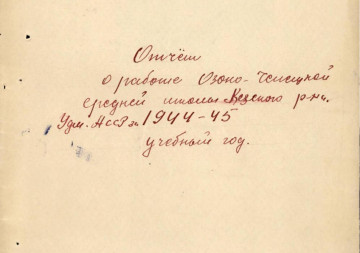 Отчёт
о работе Озоно-Чепецкой
средней школы Кезского р-на.
Удм. АССР за 1944-45
учебный год.